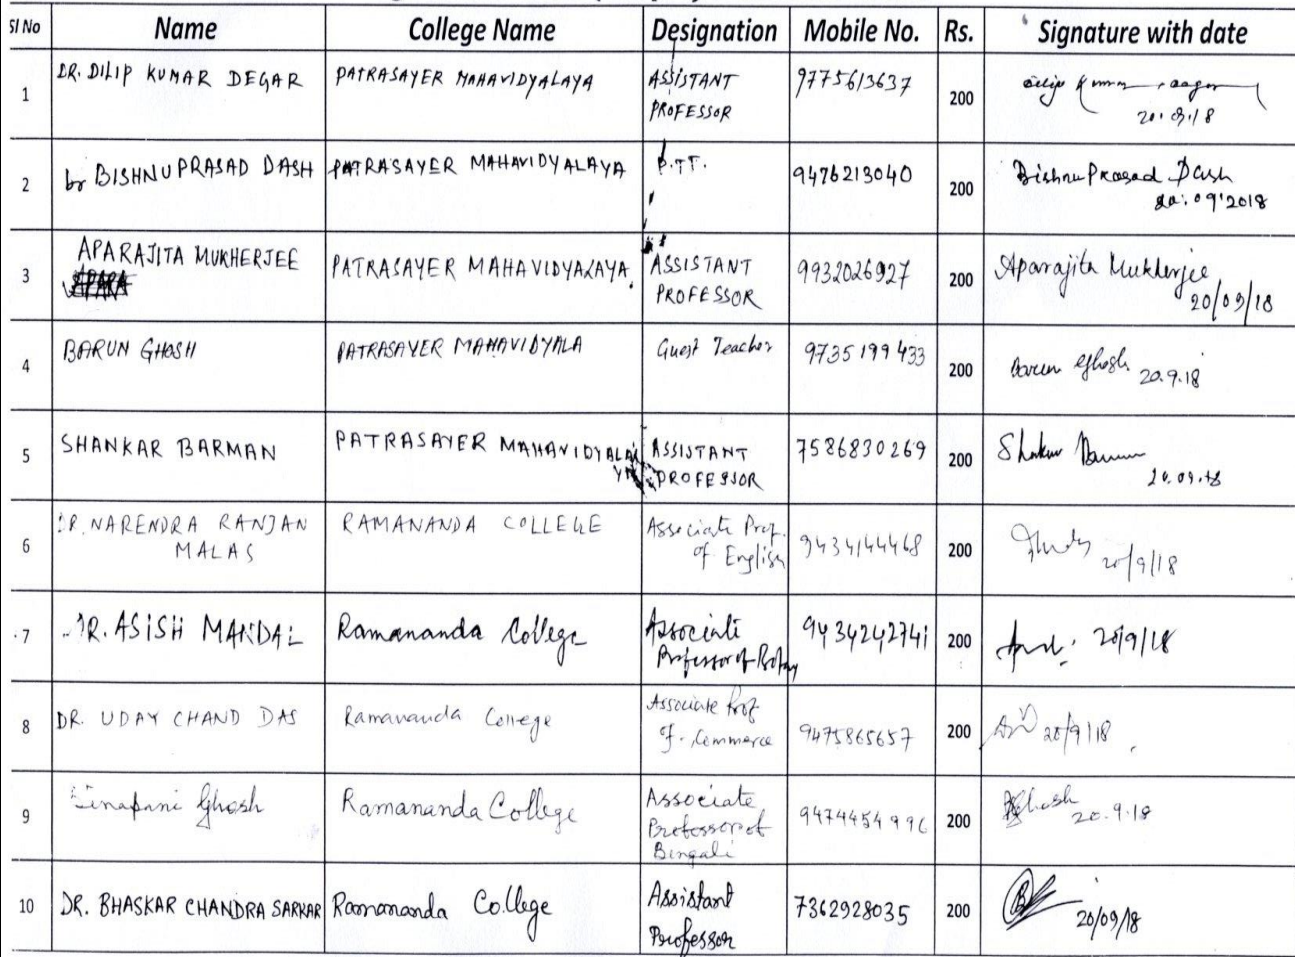 Sl No Name College Name Designation Mobile No. Rs. Signature with date
1 DR. DILIP KUMAR DEGAR PATRASAYER MAHAVIDYALAYA ASSISTANT PROFESSOR 9775613637 200
20.09.18
2 BISHNUPRASAD DASH PATRASAYER MAHAVIDYALAYA P.TT. 9476213040 200 Bishnu Prasad Dash
20.09.2018
3 APARAJITA MUKHERJEE PATRASAYER MAHAVIDYALAYA. ASSISTANT PROFESSOR 9932026927 200 Aparajita Mukherjee
20/09/18
4 BARUN GHOSH PATRASAYER MAHAVIDYALA Guest Teacher 9735199433 200 Barun Ghosh 20.9.18
5 SHANKAR BARMAN PATRASAYER MAHAVIDYALAYA ASSISTANT PROFESSOR 7586830269 200 Shankar Barman
20.09.18
6 DR. NARENDRA RANJAN MALAS RAMANANDA COLLEGE Associate Prof. of English 9434144468 200 20/9/18
7 DR. ASISH MANDAL Ramananda College Associate Professor of Botany 9434242741 200 20/9/18
8 DR. UDAY CHAND DAS Ramananda College Associate Prof of. Commerce 9475865657 200 20/9/18
9 Binapani Ghosh Ramananda College Associate Professor of Bengali 9474454996 200 BGhosh 20.9.18
10 DR. BHASKAR CHANDRA SARKAR Ramananda College Assistant Professor 7362928035 200 20/09/18